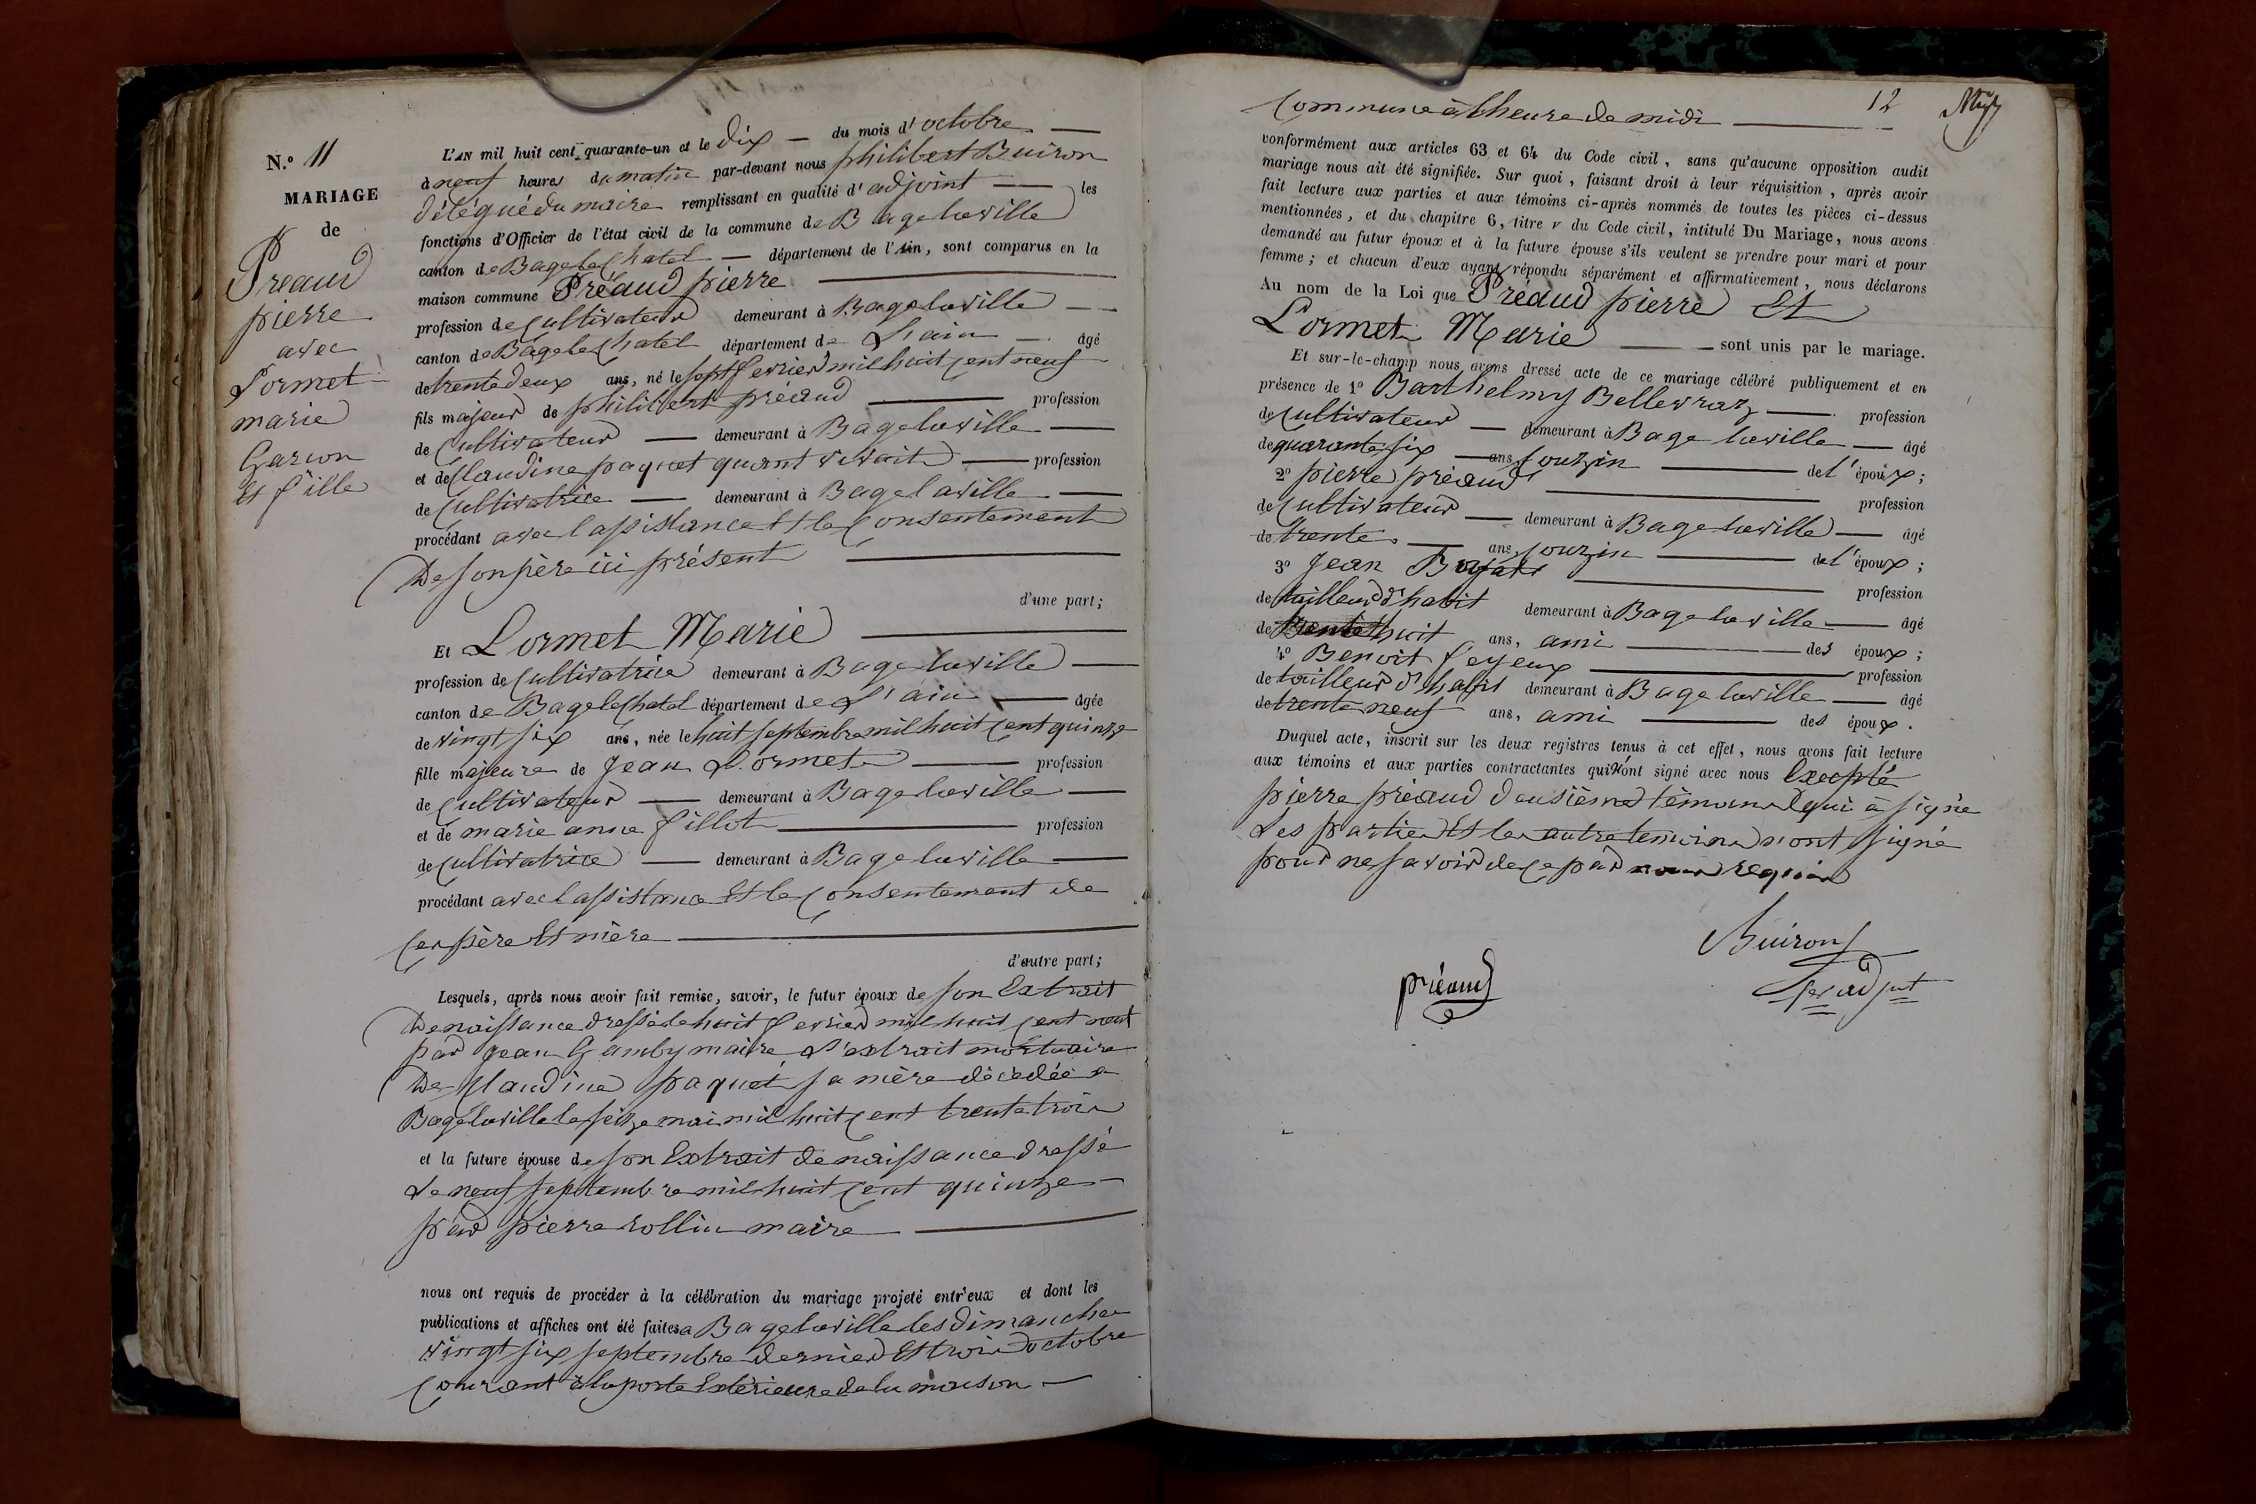 N.o 11
MARIAGE
de
Preaud
pierre
avec
Lormet
marie
Garcon
Et fille
L'AN mil huit cent quarante-un et le dix — du mois d'octobre —
à neuf heures du matin par-devant nous philibert Buiron
délégué du maire remplissant en qualité d'adjoint — les
fonctions d'Officier de l'état civil de la commune de Bagelaville
canton de Bagelechatel — département de l'Ain, sont comparus en la
maison commune Préaud pierre
profession de Cultivateur demeurant à Bagelaville
canton de Bagelechatel département de L'ain — âgé
de trente deux ans, né le sept fevrier mil huit cent neuf
fils majeur de philibert préaud — profession
de Cultivateur — demeurant à Bagelaville —
et de Claudine paquet quant vivait — profession
de Cultivatrice — demeurant à Bagelaville —
procédant avec lassistance Et le Consentement
De son père ici présent
d'une part;
Et Lormet Marie
profession de Cultivatrice demeurant à Bagelaville —
canton de Bagelechatel département de L'ain — âgée
de vingt six ans, née le huit septembre mil huit cent quinze
fille majeure de Jean Lormet — profession
de Cultivateur — demeurant à Bagelaville —
et de marie anne fillot — profession
de Cultivatrice — demeurant à Bagelaville —
procédant avec lassistance Et le Consentement de
Ces père Et mère
d'autre part;
Lesquels, après nous avoir fait remise, savoir, le futur époux de son Extrait
De naissance dressé le huit fevrier mil huit cent neuf
par Jean Gamby maire, L'extrait mortuaire
De Claudine paquet sa mère décédée a
Bagelaville le seize mai mil huit cent trente trois
et la future épouse de son Extrait de naissance dressé
Le neuf septembre mil huit cent quinze
par pierre rollin maire
nous ont requis de procéder à la célébration du mariage projeté entr'eux et dont les
publications et affiches ont été faites a Bagelaville les dimanches
vingt six septembre dernier Et trois octobre
Courant à la porte Extérieure de la maison —
12
Commune à l'heure de midi
conformément aux articles 63 et 64 du Code civil, sans qu'aucune opposition audit
mariage nous ait été signifiée. Sur quoi, faisant droit à leur réquisition, après avoir
fait lecture aux parties et aux témoins ci-après nommés de toutes les pièces ci-dessus
mentionnées, et du chapitre 6, titre v du Code civil, intitulé Du Mariage, nous avons
demandé au futur époux et à la future épouse s'ils veulent se prendre pour mari et pour
femme; et chacun d'eux ayant répondu séparément et affirmativement, nous déclarons
Au nom de la Loi que Préaud pierre Et
Lormet Marie — sont unis par le mariage.
Et sur-le-champ nous avons dressé acte de ce mariage célébré publiquement et en
présence de 1o Barthelmy Bellevrat — profession
de Cultivateur — demeurant à Bagelaville — âgé
de quarante six — ans, Couzin — de l'époux;
2o pierre préaud — profession
de Cultivateur — demeurant à Bagelaville — âgé
de trente — ans, Couzin — de l'époux;
3o Jean — profession
de tailleur d'habit demeurant à Bagelaville — âgé
de huit ans, ami — des époux;
4o Benoit feyeux — profession
de tailleur d'habit demeurant à Bagelaville — âgé
de trente neuf ans, ami — des époux.
Duquel acte, inscrit sur les deux registres tenus à cet effet, nous avons fait lecture
aux témoins et aux parties contractantes qui n'ont signé avec nous Excepté
pierre préaud deusième témoin qui à signé
Les parties Et les autre temoins n'ont signé
pour ne savoir de ce par nous requis
Buiron
préaud
adjnt